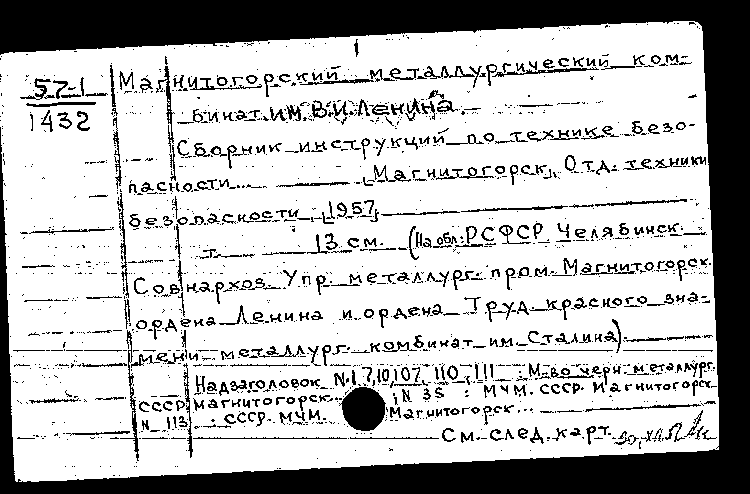 57-1
1432
Магнитогорский металлургический ком-
бинат им. В.И. Ленина.
Сборник инструкций по технике безо-
пасности... Магнитогорск, Отд. техники
безопасности, 1957,
т. 13 см. (На обл.: РСФСР Челябинск.
Совнархоз. Упр. металлург. пром. Магнитогорск.
ордена Ленина и ордена Труд. красного зна-
мени металлург. комбинат им. Сталина).
Надзаголовок N.1,7,10,107, 110, 111 : М-во черн. металлург.
СССР. Магнитогорск... ; N 35 : МЧМ. СССР. Магнитогорск
N 113 : СССР. МЧМ. Магнитогорск...
См. след. карт.